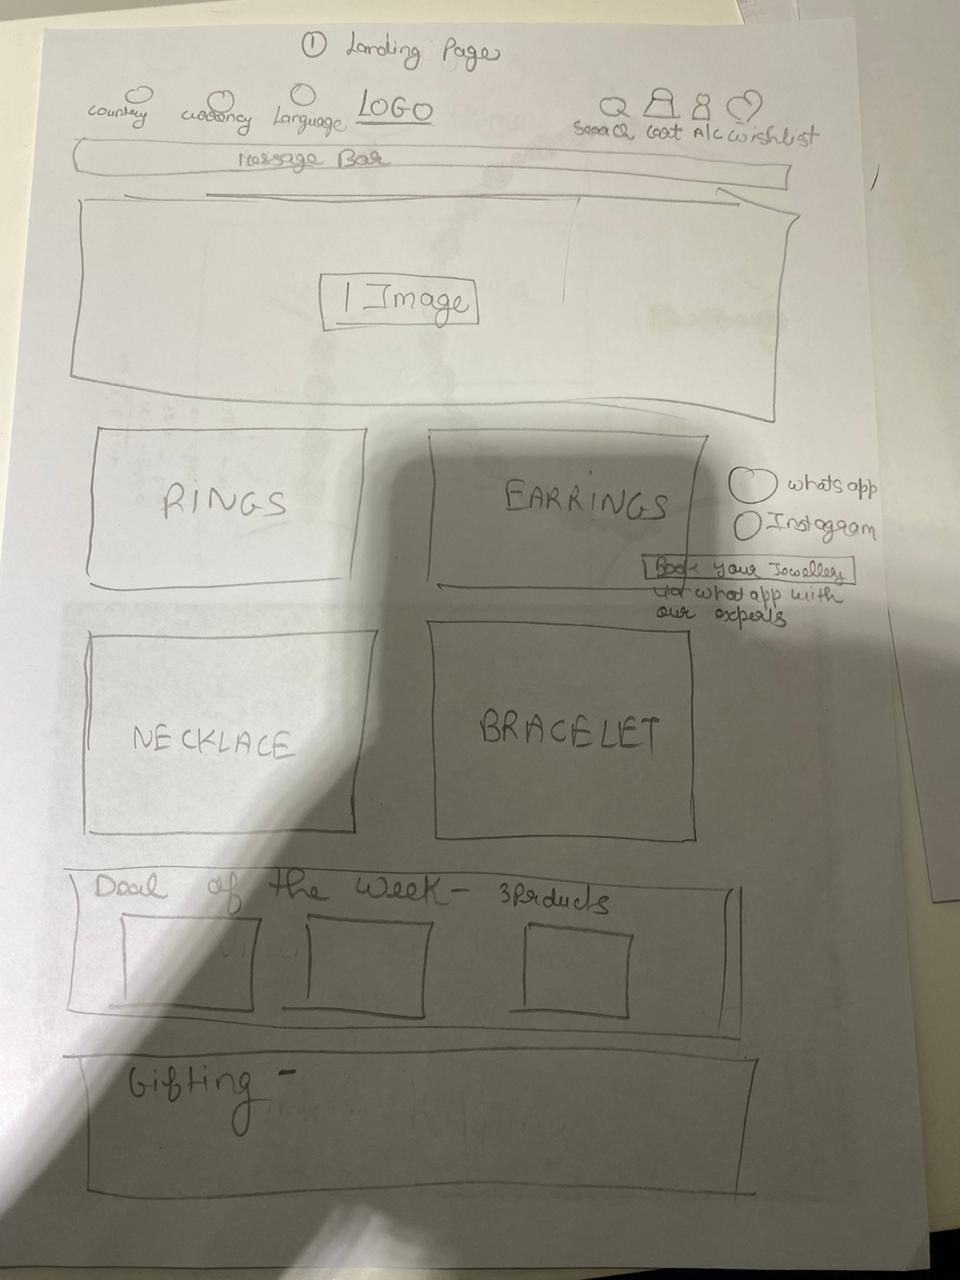 ① Landing Page
Country Currency Language LOGO Search Cart A/c Wishlist
Message Bar
1 Image
RINGS
EARRINGS
whatsapp
Instagram
Book your Jewellery
via whatapp with
our experts
NECKLACE
BRACELET
Deal of the week - 3 Prducts
Gifting -